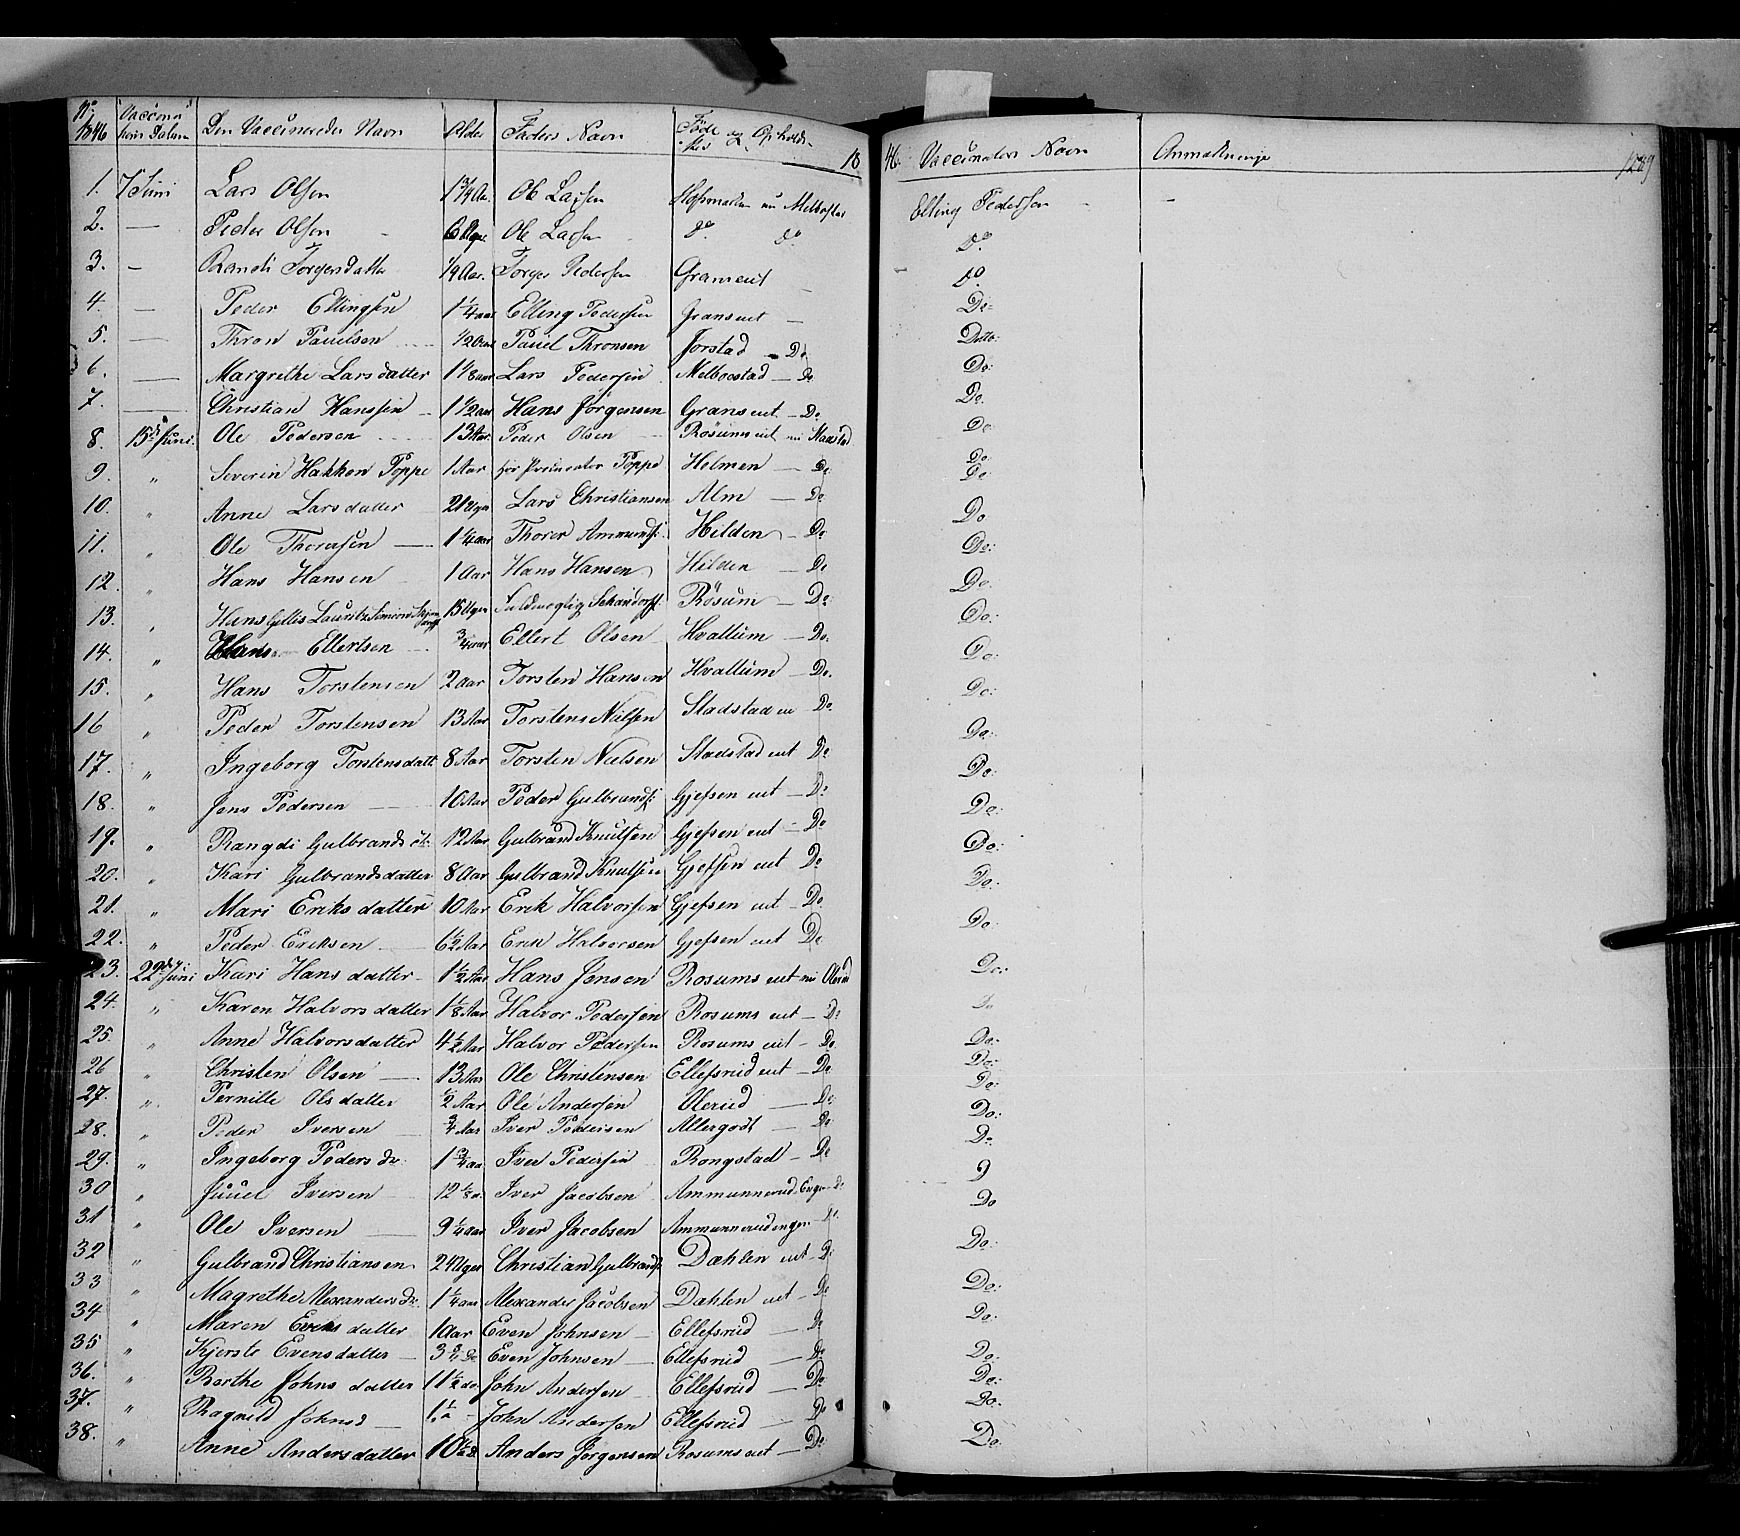 No 1846 Vaccina- tions Datum Den Vaccineredes Navn Alder Faders Navn Föde og Opholds- sted 18
46. Vaccinators Navn Anmærkninger
1. 7 Juni Lars Olsen 1 3/4 Aar Ole Larsen Elling Pedersen
2. — Peder Olsen Uger Ole Larsen Do Do Do
3. — Randi Torgersdatter 1/2 Aar. Torger Pedersen Do
4. — Peder Ellingsen 1 1/4 aar Elling Pedersen Gransent — Do
5. — Thron Paulsen 1/2 Aar Pauel Thronsen Jorstad — Do Ditto:
6. — Margrethe Larsdatter 1 1/8 aar Lars Pedersen Melboestad — Do Do:
7. — Christian Hanssen — 1 1/2 aar Hans Jörgensen Grans eit. — Do Do.
8. 15d Juni. Ole Pedersen 13 Aar. Peder Olsen Rösums eit Do
9. " Severin Hakkon Poppe 1 Aar Poppe Helmen — Do Do Do
10. " Anne Larsdatter 21 Uger Lars Christiansen Alm — Do Do
11. " Ole Thorersen — 1 1/4 aar Thorer Ammunds: Hilden — Do Do:
12. " Hans Hansen 1 Aar Hans Hansen Hilden — Do Do.
13. " Hans Lauritz 15 Uger Rösum — Do Do:
14. " Hans Ellertsen 3/4 aar Ellert Olsen Hvattum — Do. Do:
15. " Hans Torstensen 2 aar Torsten Hansen Hvattum — Do. Do:
16 " Peder Torstensen 13 Aar Torstens Nielsen Stadstad Do Do:
17. " Ingeborg Torstensdatt 8 Aar Torsten Nielsen Stadstad eit Do Do:
18. " Jens Pedersen — 10 Aar Peder Gulbrands: Gjefsen eit — Do Do:
19. " Rangdi Gulbrands dt: 12 Aar Gulbrand Knutsen Gjefsen eit — Do Do:
20. " Kari Gulbrandsdatter 8 Aar Gulbrand Knutsen Gjefsen eit Do Do.
21. " Mari Eriksdatter 10 Aar Erik Halvorsen Gjefsen eit — Do Do:
22. " Peder Eriksen — 6 1/2 Aar Erik Halvorsen Gjefsen eit Do
23. 22d Juni Kari Hansdatter — 1 1/2 Aar Hans Jensen Rosums eit Do:
24. " Karen Halvorsdatter 1 1/8 Aar Halvor Pedersen Rosums eit — Do Do
25. " Anne Halvorsdatter 4 1/2 Aar Halvor Pedersen Rosums eit — Do. Do:
26 " Christen Olsen — 13 Aar Ole Christensen Ellefsrud eit — Do Do:
27. " Pernille Olsdatter 1/2 Aar Ole Andersen Olerud — Do Do:
28. " Peder Iversen — 3/4 Aar Iver Pedersen — Do Do:
29. " Ingeborg Peders dr. 1 3/4 aar Iver Pedersen Rongstad — Do Do
30 " Juuel Iversen — 12 1/8 a. Iver Jacobsen Ammunnerud Do
31 " Ole Iversen — 9 1/4 aar Iver Jacobsen Ammunnerud Do Do
32 " Gulbrand Christiansen 24 Uger Christian Gulbrands: Dæhlen eit — Do Do:
33 " Magrethe Alexanders dr. 1 1/4 aar Alexander Jacobsen Dæhlen eit — Do Do:
34 " Maren Evensdatter 1 Aar Even Johnsen — Ellefsrud — Do Do.
35 " Kjerste Evensdatter — 3 3/4 Do Even Johnsen — Ellefsrud — Do Do:
36. " Berthe Johnsdatter 11 1/2 do John Andersen Ellefsrud — Do Do:
37. " Ragnild Johnsd — John Andersen Ellefsrud — Do Do.
38. " Anne Andersdatter 10 Anders Jörgensen Rosums eit — Do Do: